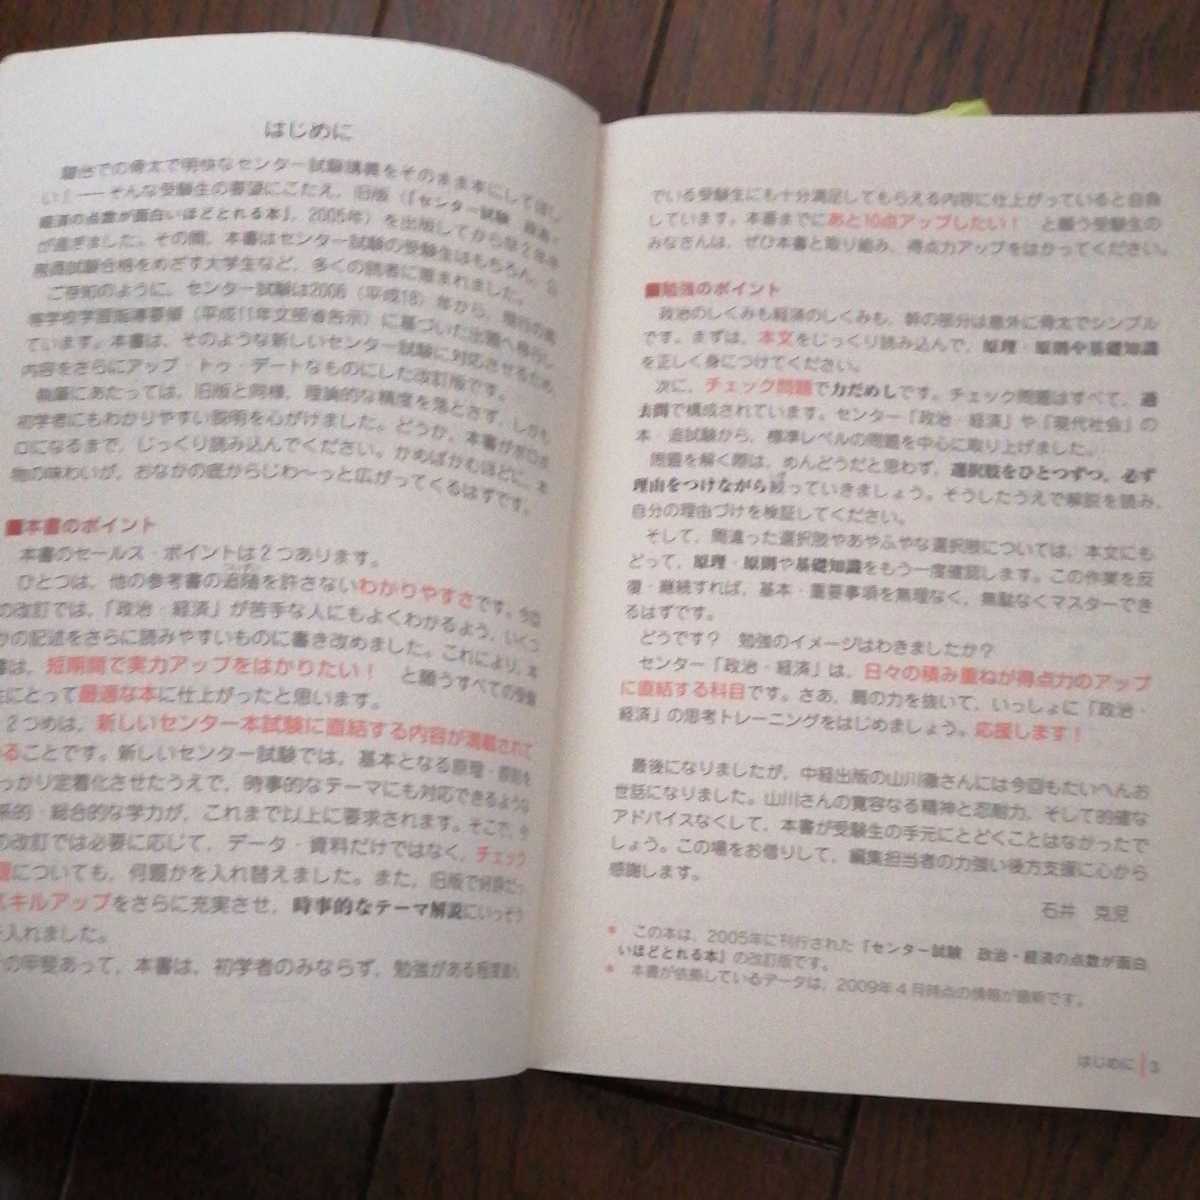 はじめに
駿台での骨太で明快なセンター試験講義をそのまま本にしてほし
い！——そんな受験生の要望にこたえ，旧版（『センター試験　政治・
経済の点数が面白いほどとれる本』，2005年）を出版してから早2年半
が過ぎました。その間，本書はセンター試験の受験生はもちろん，公
務員試験合格をめざす大学生など，多くの読者に恵まれました。
ご存知のように，センター試験は2006（平成18）年から，現行の高
等学校学習指導要領（平成11年文部省告示）に基づいた出題へ移行し
ています。本書は，そのような新しいセンター試験に対応させるため，
内容をさらにアップ・トゥ・デートなものにした改訂版です。
執筆にあたっては，旧版と同様，理論的な精度を落とさず，しかも
初学者にもわかりやすい説明を心がけました。どうか，本書が
口になるまで，じっくり読み込んでください。かめばかむほどに，本
物の味わいが，おなかの底からじわ～っと広がってくるはずです。
■本書のポイント
本書のセールス・ポイントは2つあります。
ひとつは，他の参考書の追随を許さないわかりやすさです。今回
の改訂では，「政治・経済」が苦手な人にもよくわかるよう，いくつ
かの記述をさらに読みやすいものに書き改めました。これにより，本
書は，短期間で実力アップをはかりたい！　と願うすべての受験
生にとって最適な本に仕上がったと思います。
2つめは，新しいセンター本試験に直結する内容が満載されて
いることです。新しいセンター試験では，基本となる原理・原則を
しっかり定着化させたうえで，時事的なテーマにも対応できるような
系的・総合的な学力が，これまで以上に要求されます。そこで，今
の改訂では必要に応じて，データ・資料だけではなく，チェック
題についても，何題かを入れ替えました。また，旧版で好評だった
スキルアップをさらに充実させ，時事的なテーマ解説にいっそう
を入れました。
の甲斐あって，本書は，初学者のみならず，勉強がある程度進ん
でいる受験生にも十分満足してもらえる内容に仕上がっていると自負
しています。本番までにあと10点アップしたい！　と願う受験生の
みなさんは，ぜひ本書と取り組み，得点力アップをはかってください。
■勉強のポイント
政治のしくみも経済のしくみも，幹の部分は意外に骨太でシンプル
です。まずは，本文をじっくり読み込んで，原理・原則や基礎知識
を正しく身につけてください。
次に，チェック問題で力だめしです。チェック問題はすべて，過
去問で構成されています。センター「政治・経済」や「現代社会」の
本・追試験から，標準レベルの問題を中心に取り上げました。
問題を解く際は，めんどうだと思わず，選択肢をひとつずつ，必ず
理由をつけながら絞っていきましょう。そうしたうえで解説を読み，
自分の理由づけを検証してください。
そして，間違った選択肢やあやふやな選択肢については，本文にも
どって，原理・原則や基礎知識をもう一度確認します。この作業を反
復・継続すれば，基本・重要事項を無理なく，無駄なくマスターでき
るはずです。
どうです？　勉強のイメージはわきましたか？
センター「政治・経済」は，日々の積み重ねが得点力のアップ
に直結する科目です。さあ，肩の力を抜いて，いっしょに「政治・
経済」の思考トレーニングをはじめましょう。応援します！
最後になりましたが，中経出版の山川徹さんには今回もたいへんお
世話になりました。山川さんの寛容なる精神と忍耐力，そして的確な
アドバイスなくして，本書が受験生の手元にとどくことはなかったで
しょう。この場をお借りして，編集担当者の力強い後方支援に心から
感謝します。
石井　克児
＊　この本は，2005年に刊行された『センター試験　政治・経済の点数が面白
いほどとれる本』の改訂版です。
＊　本書が依拠しているデータは，2009年4月時点の情報が最新です。
はじめに　3